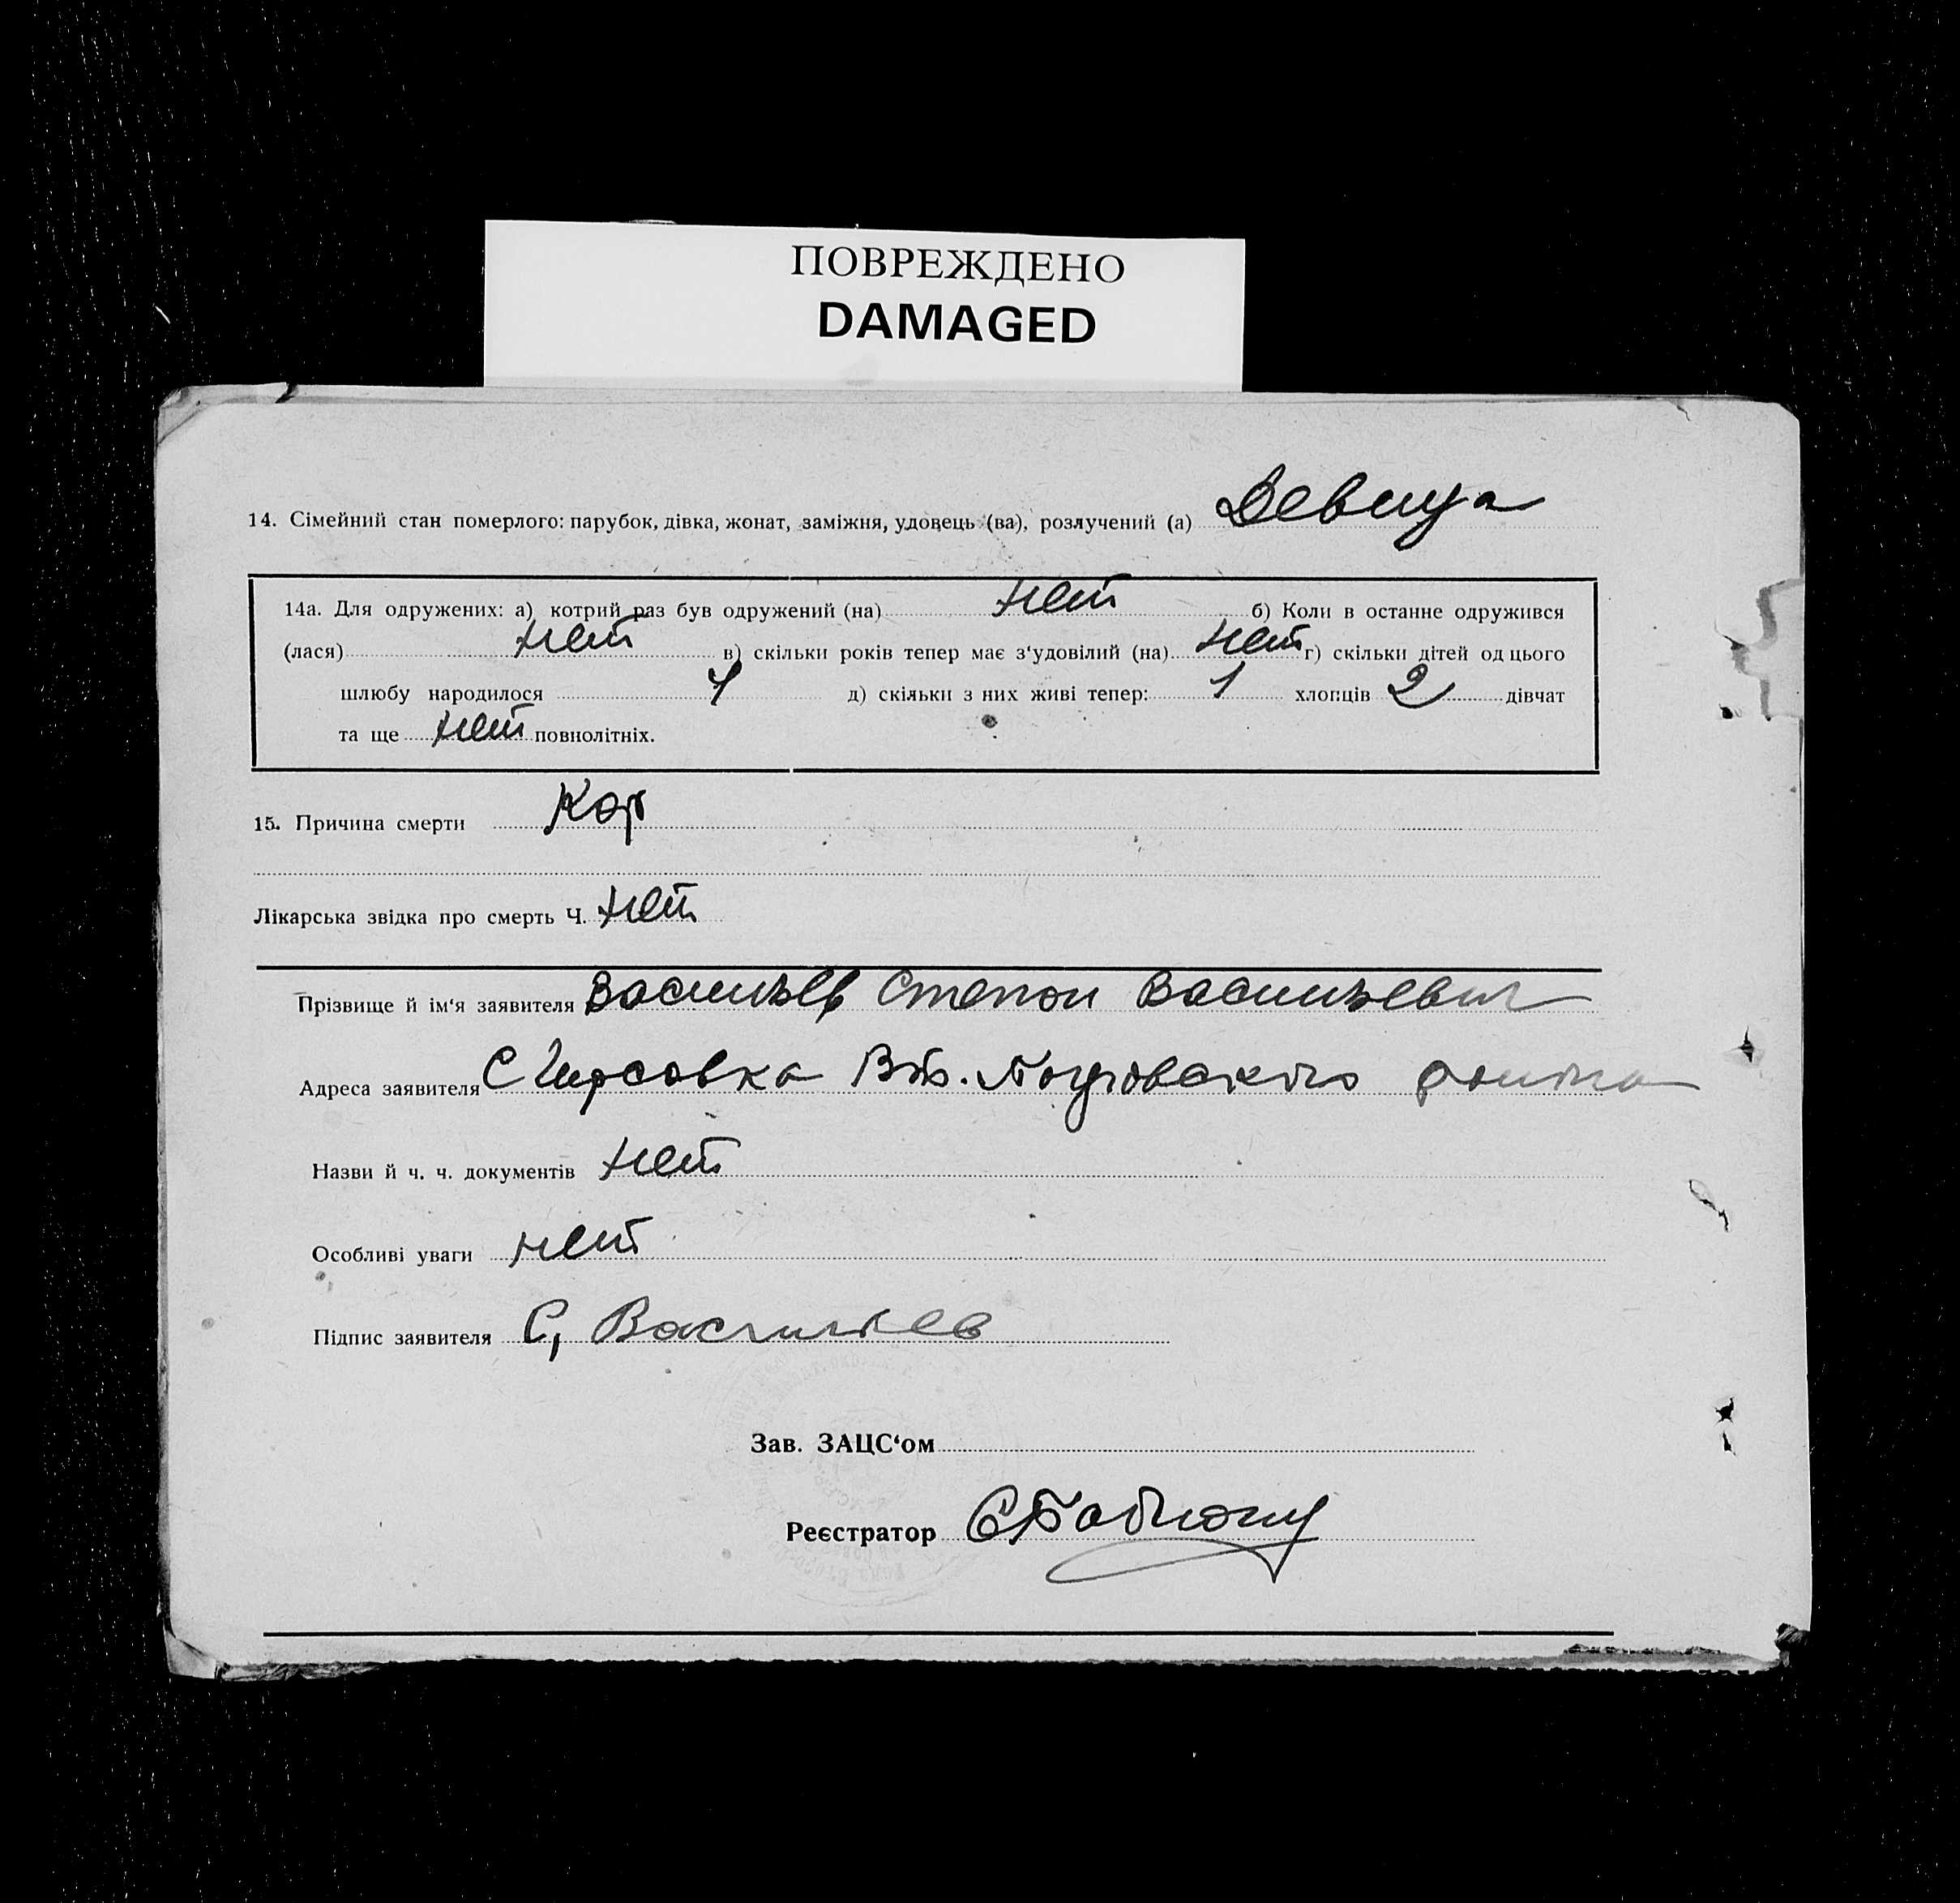 ПОВРЕЖДЕНО
DAMAGED
14. Сімейний стан померлого: парубок, дівка, жонат, заміжня, удовець (ва), розлучений (а) Девица
14а. Для одружених: а) котрий раз був одружений (на) нет б) Коли в останне одружився
(лася) нет в) скільки років тепер має з‘удовілий (на) нет г) скільки дітей од цього
шлюбу народилося д) скільки з них живі тепер: 1 хлопців 2 дівчат
та ще нет повнолітніх.
15. Причина смерти Кор
Лікарська звідка про смерть Ч. нет
Прізвище й ім‘я заявителя Васильев Степан Васильевич
Адреса заявителя С
Назви й ч. ч. документів нет
Особливі уваги нет
Підпис заявителя С, Васильев
Зав. ЗАЦС‘ом
Реєстратор